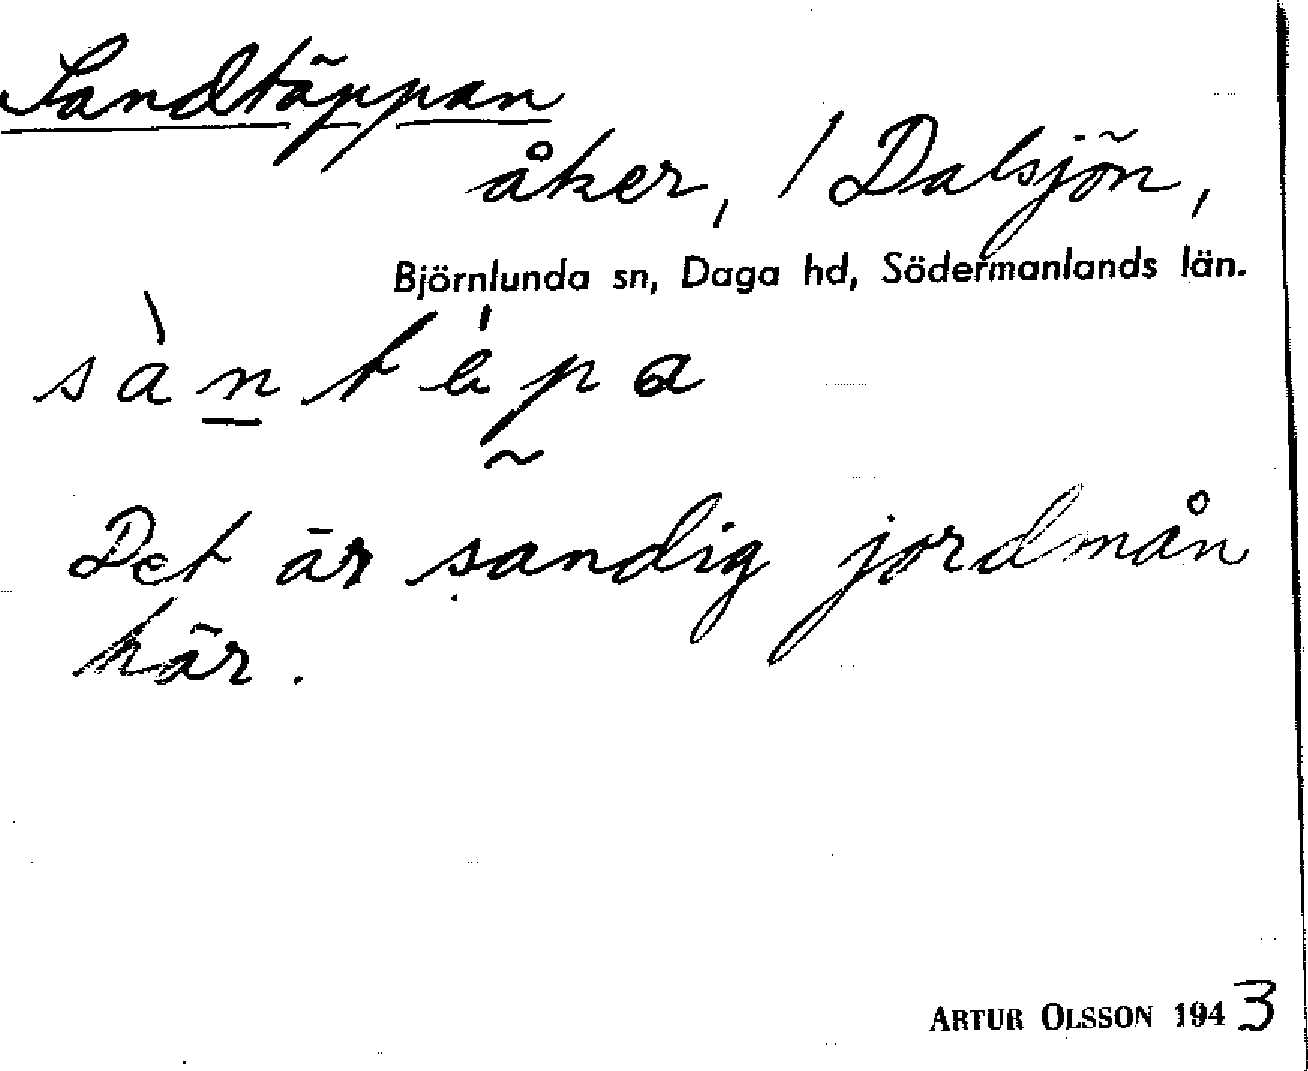 Sandtäppan
åker, / Dalsjön,
Björnlunda sn, Daga hd, Södermanlands län.
Det är sandig jordmån
här.
ARTUR OLSSON 1943